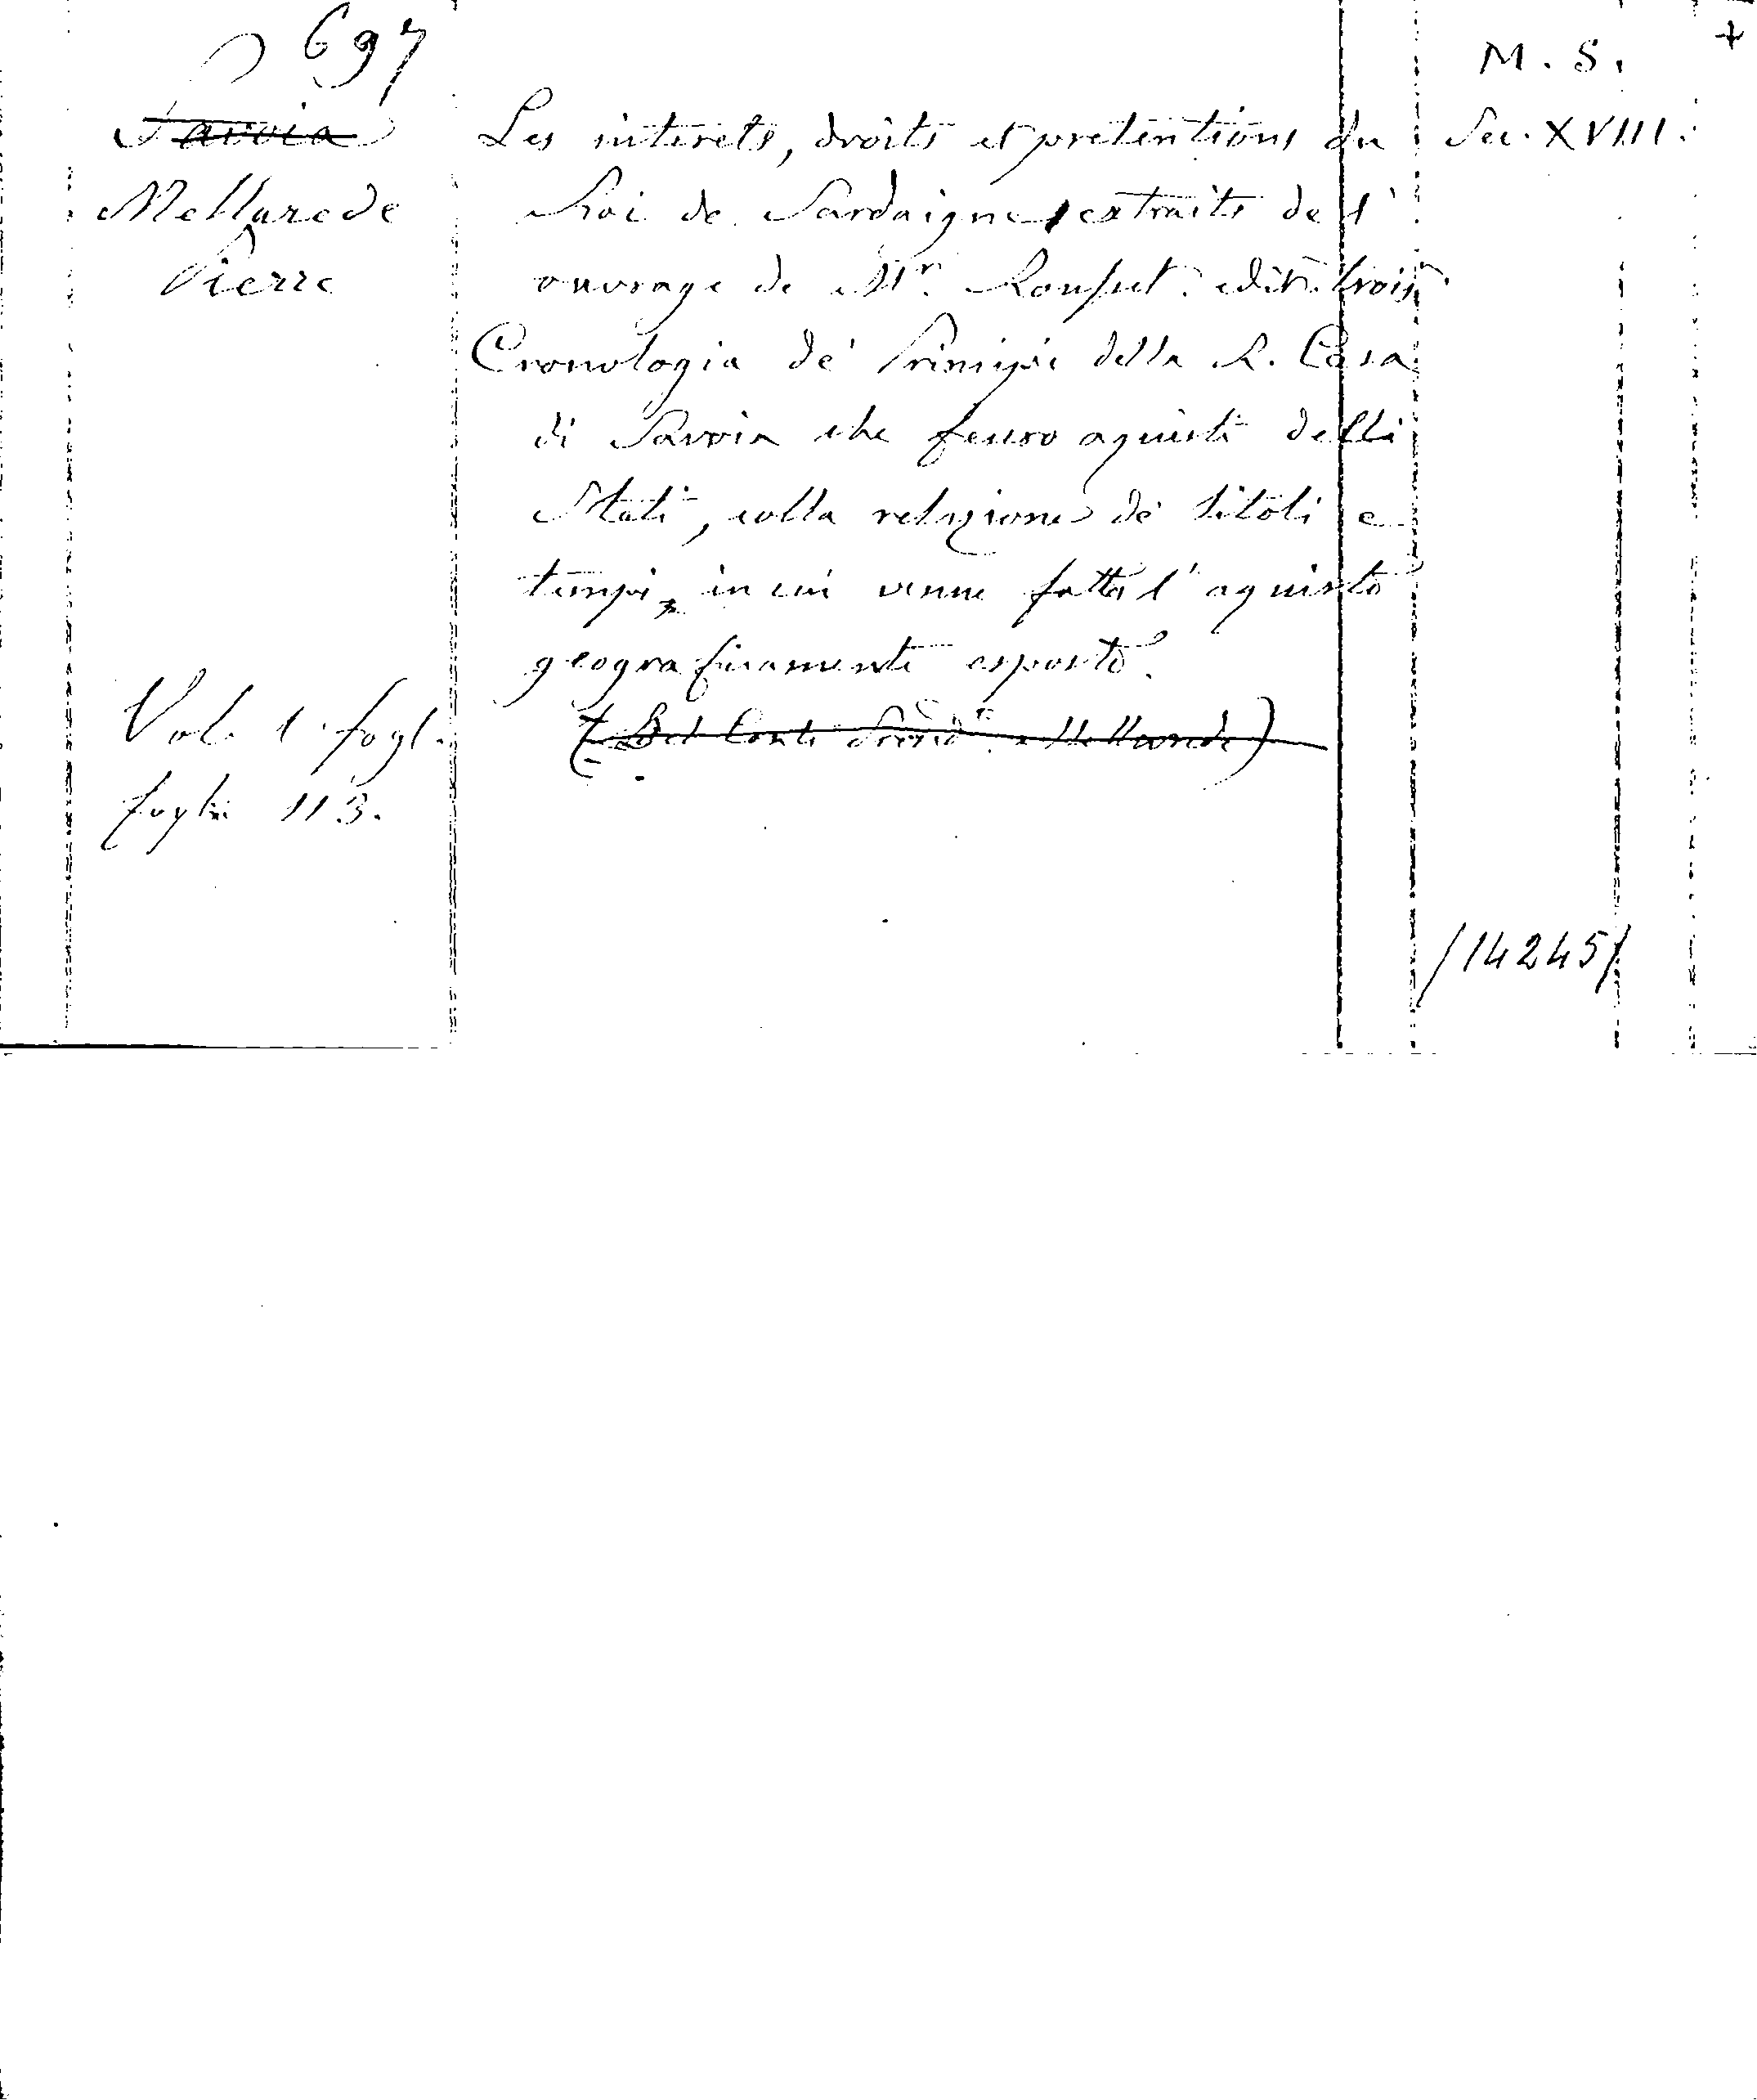 697
M. S. +
Savoia
Mellarede
Pierre
Les interets, droits et pretentions du
Roi de Sardaigne, extraits de l'
ouvrage de Mr. Rousset. edit. trois.
Cronologia de' Principi della R. Casa
di Savoia che fecero aquisti delli
Stati, colla relazione de' titoli e
tempi, in cui venne fatto l'aquisto
geograficamente esposto.
(Del Conte Mellarede)
Sec. XVIII.
Vol. 1. fogl.
fogli 113.
/14245/